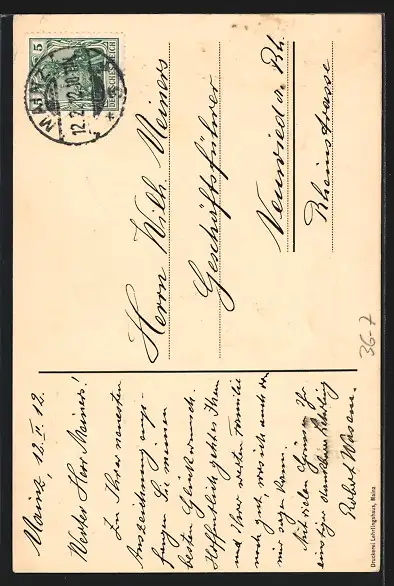 Mainz, 12. II. 12.
Werter Herr Meiners!
Zu Ihrer neuesten
Auszeichnung emp-
fangen Sie meinen
besten Glückwunsch.
Hoffentlich geht es Ihnen
und Ihrer werten Familie
noch gut, was ich auch von
mir sagen kann.
Mit vielen Grüssen Ihr
einstiger dankbarer Lehrling
Robert Wasem.
Druckerei Lehrlingshaus, Mainz
MAINZ
12.2.12.
5
DEUTSCHES REICH
Herrn Wilh. Meiners
Geschäftsführer
Neuwied a. Rh.
Rheinstrasse
36-7